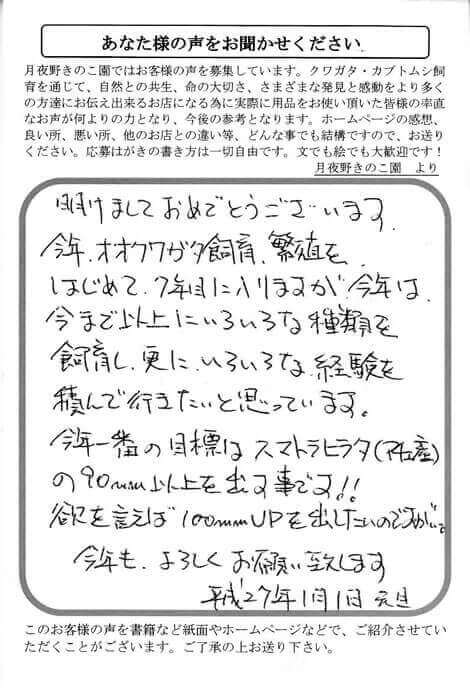 あなた様の声をお聞かせください
月夜野きのこ園ではお客様の声を募集しています。クワガタ・カブトムシ飼
育を通じて、自然との共生、命の大切さ、さまざまな発見と感動をより多く
の方達にお伝え出来るお店になる為に実際に用品をお使い頂いた皆様の率直
なお声が何よりの力となり、今後の参考となります。ホームページの感想、
良い所、悪い所、他のお店との違い等、どんな事でも結構ですので、お送り
ください。応募はがきの書き方は一切自由です。文でも絵でも大歓迎です！
月夜野きのこ園　より
明けましておめでとうございます。
今年、オオクワガタ飼育、繁殖を
はじめて、7年目に入りますが、今年は、
今まで以上にいろいろな種類を
飼育し、更に、いろいろな経験を
積んで行きたいと思っています。
今年一番の目標はスマトラヒラタ(アチェ産)
の90mm以上を出す事です!!
欲を言えば100mmUPを出したいのですが
今年も、よろしくお願い致します
平成27年1月1日 元旦
このお客様の声を書籍など紙面やホームページなどで、ご紹介させてい
ただくことがございます。ご了承の上お送り下さい。